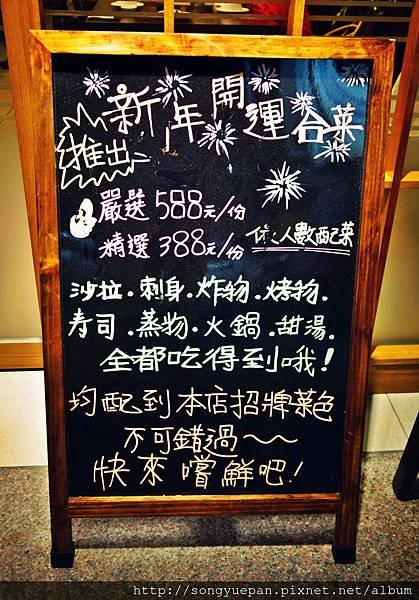 新年開運合菜
推出
嚴選 588元/份
精選 388元/份
依:人數配菜
沙拉.刺身.炸物.烤物.
寿司.蒸物.火鍋.甜湯.
全都吃得到哦!
均配到本店招牌菜色
不可錯過~~
快來嚐鮮吧!
http://songyuepan.pixnet.net/album